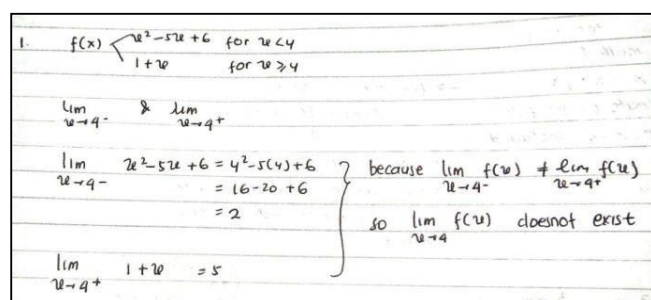 1. f(x) < x² - 5x + 6 for x < 4
1 + x for x ≥ 4
lim x→4- & lim x→4+
lim x→4- x² - 5x + 6 = 4² - 5(4) + 6
= 16 - 20 + 6
= 2
lim x→4+ 1 + x = 5
because lim x→4- f(x) ≠ lim x→4+ f(x)
so lim x→4 f(x) doesnot exist